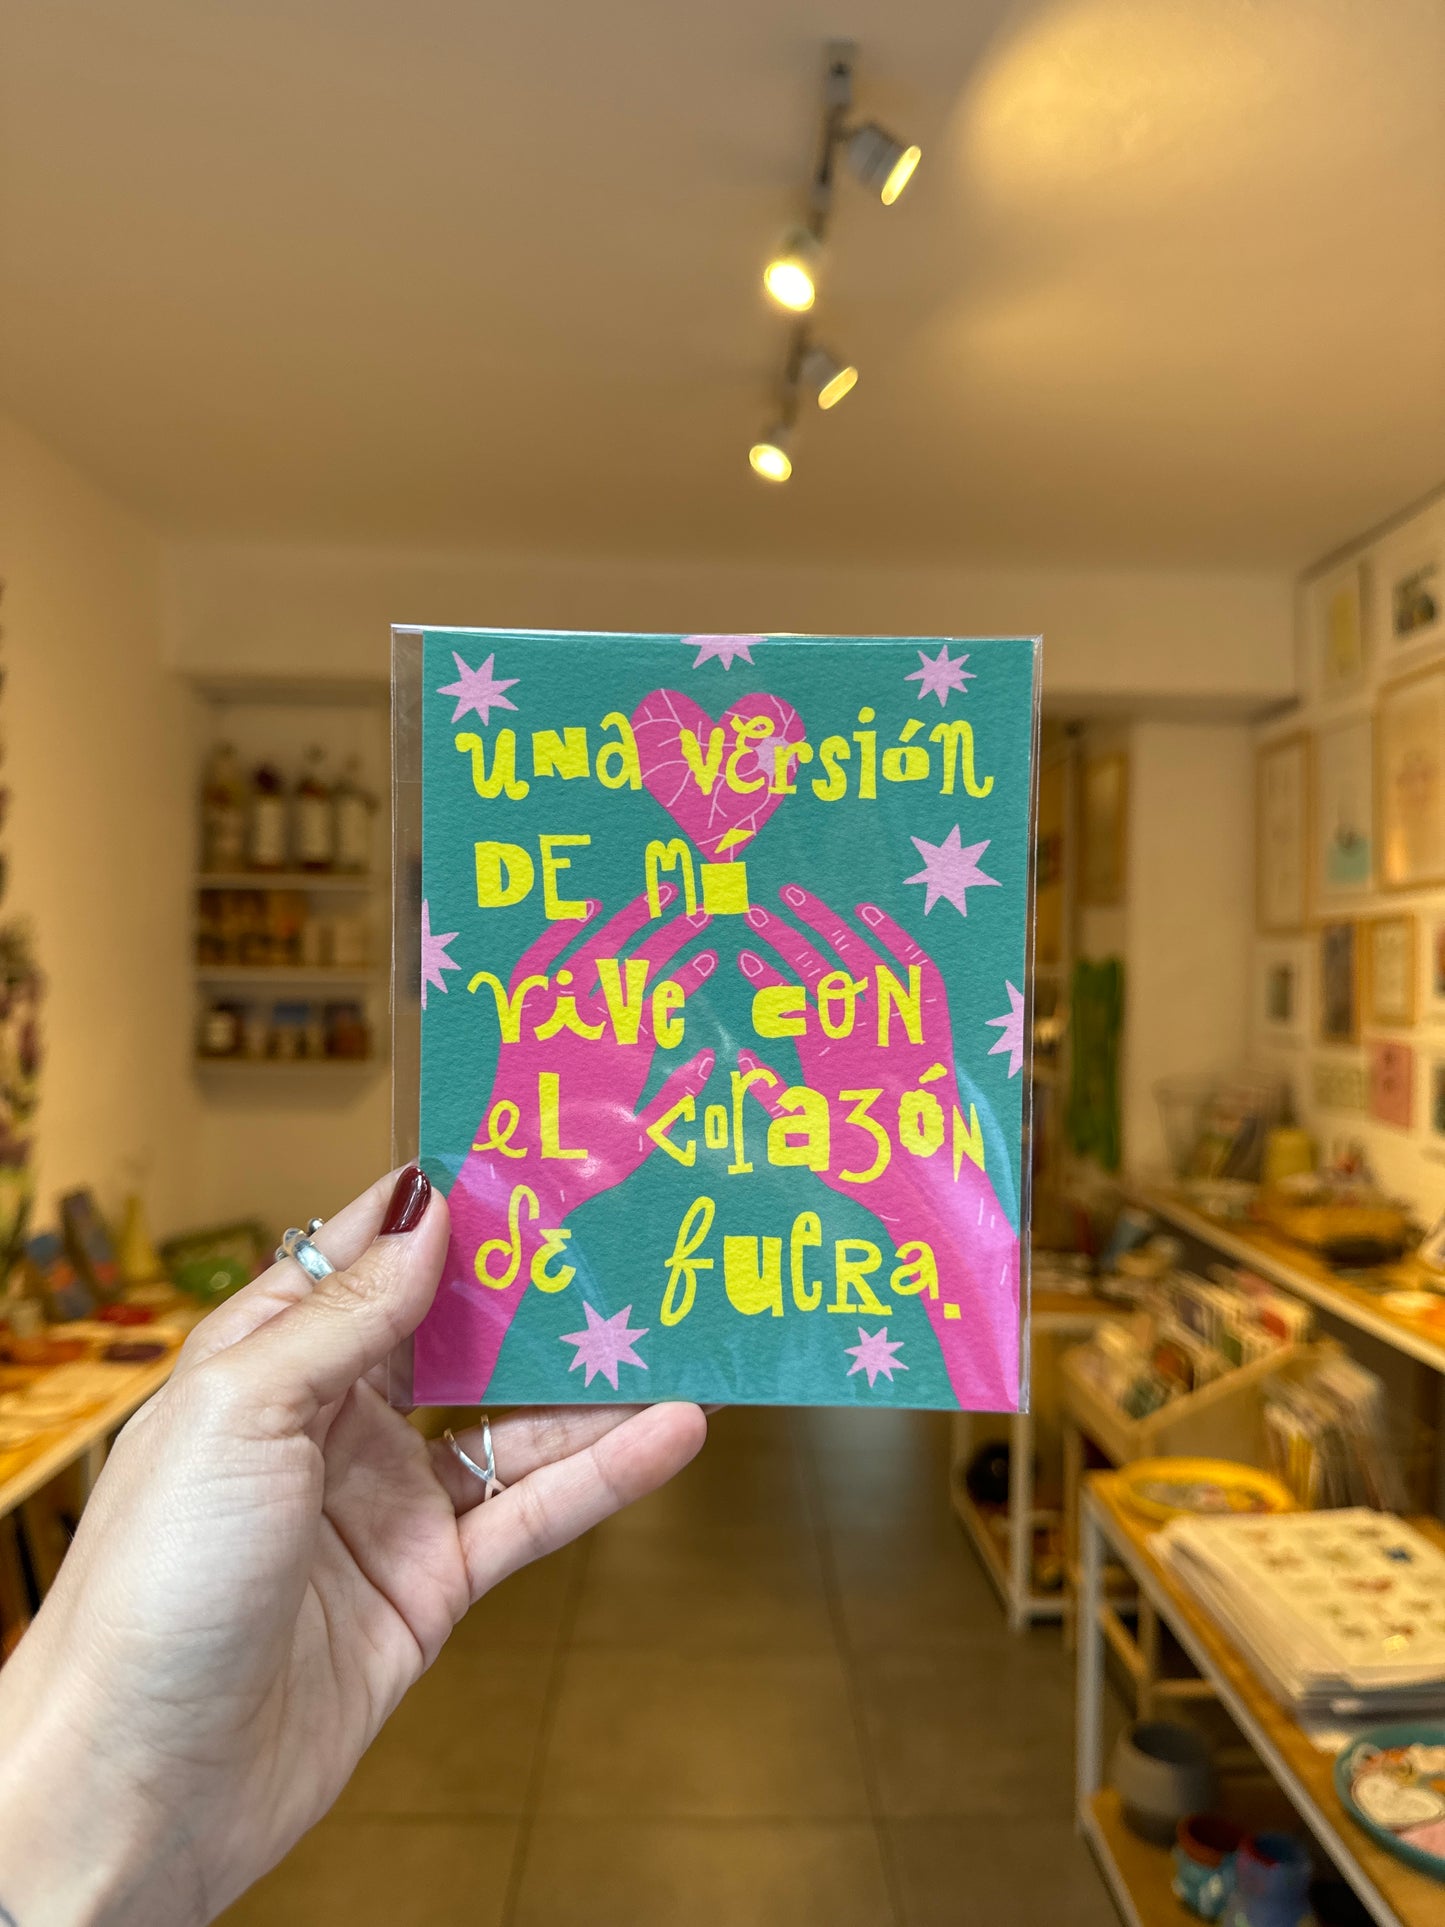 una versión
DE mí
vive con
el corazón
de fuera.